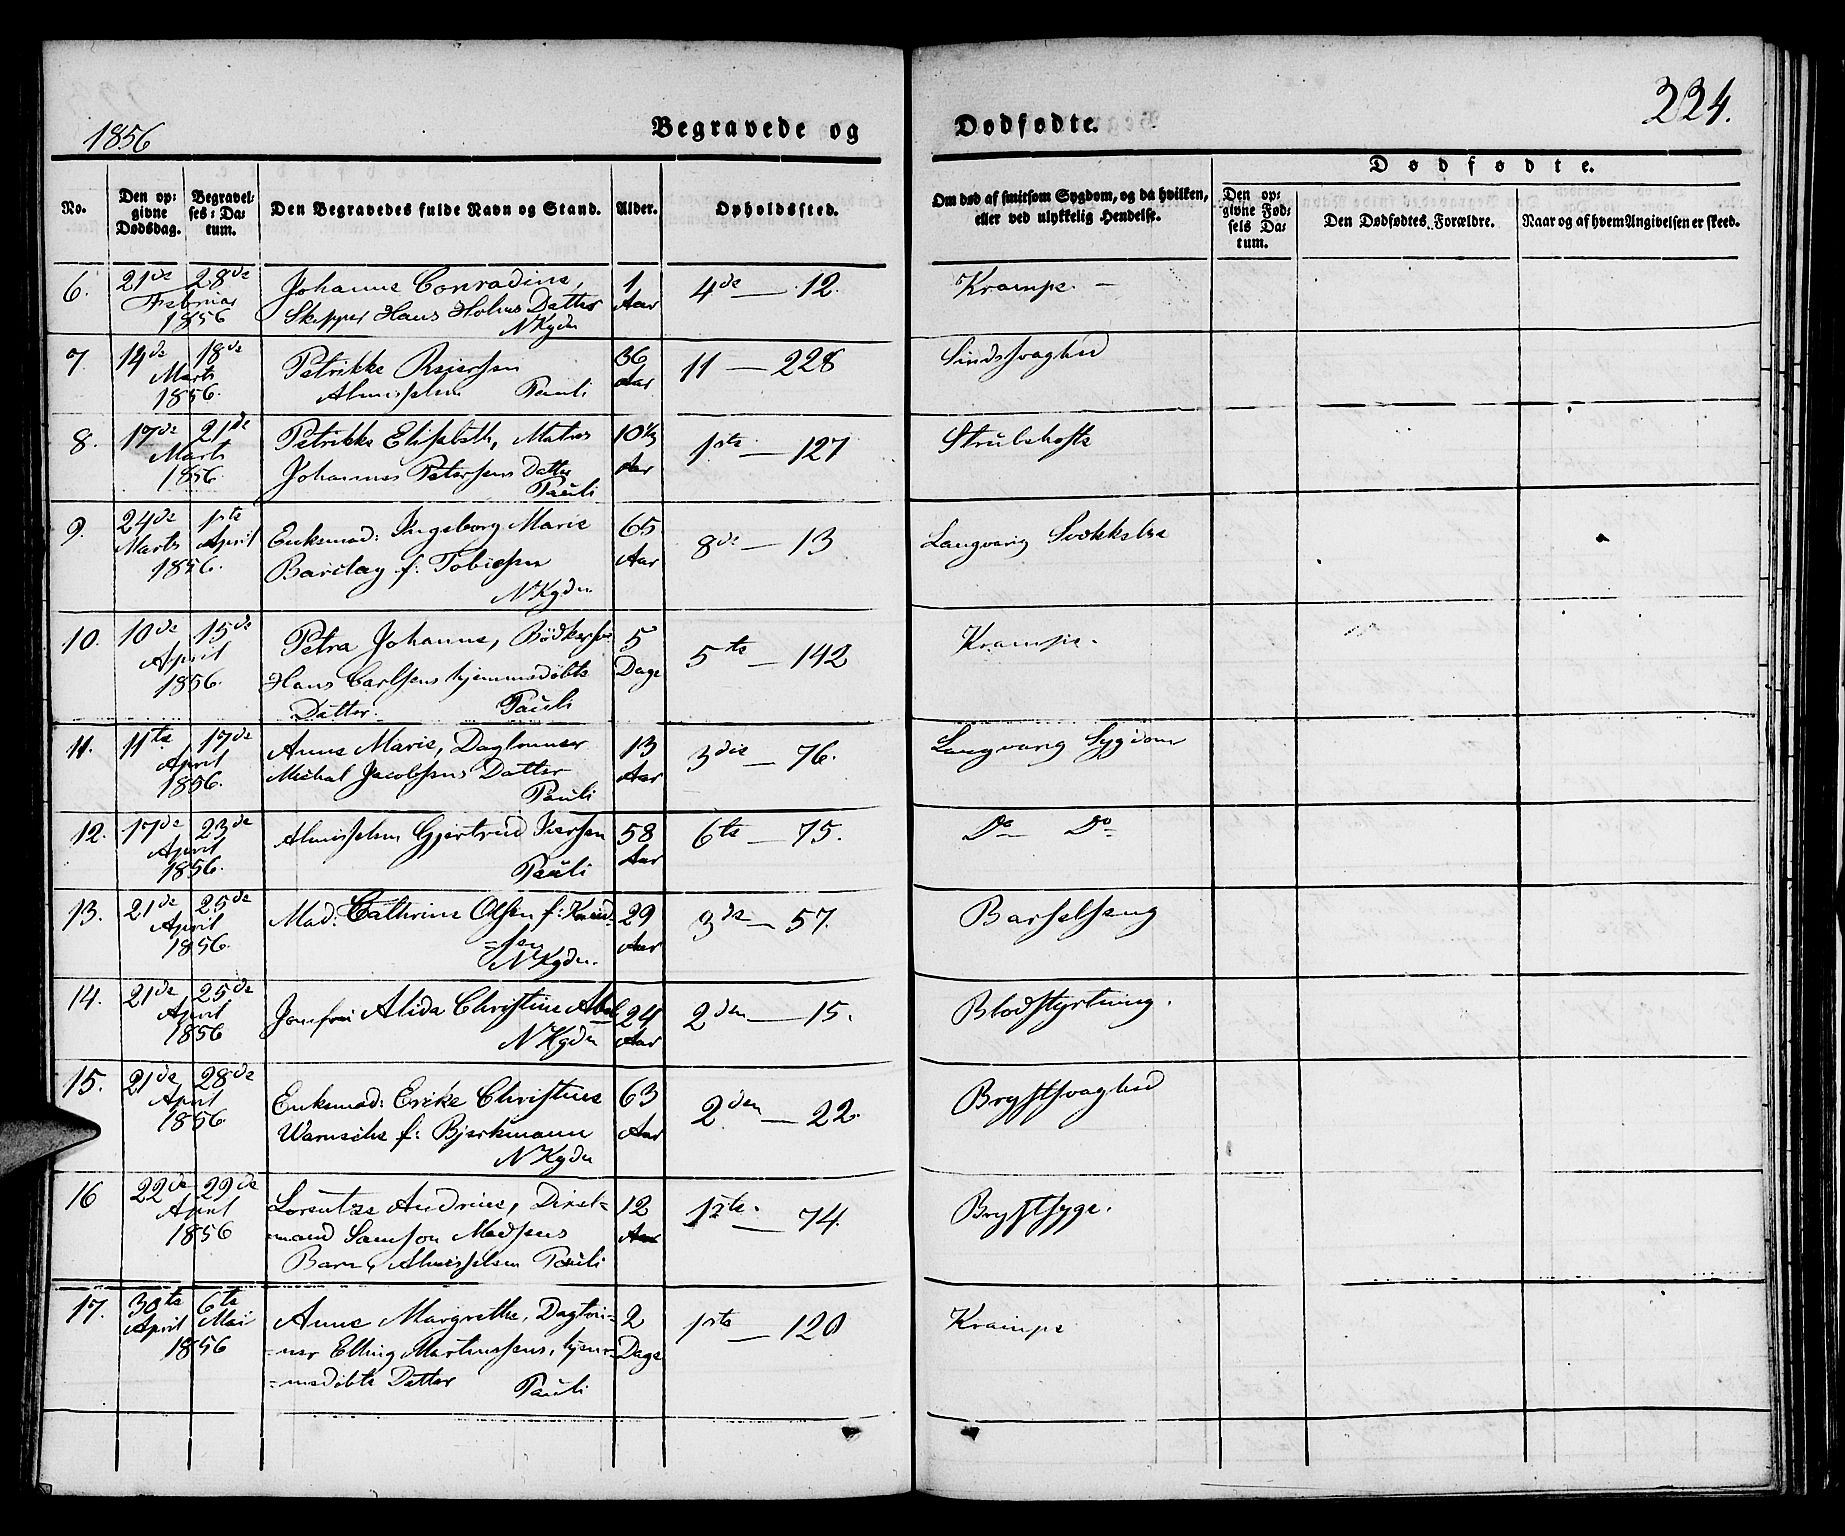 1856
Begravede og Dødfødte.
224.
Dødfødte.
No.
Den op-
givne
Dødsdag.
Begravel-
ses-Da-
tum.
Den Begravedes fulde Navn og Stand.
Alder.
Opholdssted.
Om død af smitsom Sygdom, og da hvilken,
eller ved ulykkelig Hendelse.
Den op-
givne Fød-
sels Da-
tum.
Den Dødfødtes Forældre.
Naar og af hvem Angivelsen er skeed.
6. 21de 28de Johanne Conradine, 1 4de — 12. Krampe. –
Februar Skipper Hans Holms Datter Aar
1856 NKgdn
7. 14de 18de Petrikke Reiersen 36 11 — 228 Sindssvaghed
Marts Almisselem Pauli Aar
1856.
8. 17de 21de Petrikke Elisabeth, Matros 10½ 1ste — 127 Strubehoste
Marts Johannes Petersens Datter Aar
1856. Pauli
9. 24de 1ste Enkemad: Ingeborg Marie 65 8de — 13 Langvarig Svækkelse
Marts April Barclay f: Tobiesen Aar
1856. NKgdn
10. 10de 15de Petra Johanne, Bødkersv. 5 5te — 142 Krampe.
April Hans Carlsens hjemmedøbte Dage
1856. Datter. Pauli
11. 11te 17de Anne Marie, Daglønner 13 3die — 76. Langvarig Sygdom
April Michal Jacobsens Datter Aar
1856. Pauli
12. 17de 23de Almisselem Gjertrud Iversen 58 6te — 75. Do Do
April Aar
1856. Pauli
13. 21de 25de Mad: Cathrine Olsen f: Knud- 29 3de — 57. Barselseng
April =sen Aar
1856. NKgdn.
14. 21de 25de Jomfru Alida Christine Abel 24 2den — 15. Blodstyrtning.
April NKgdn Aar
1856
15. 21de 28de Enkemad: Ericke Christine 63 2den — 22. Brystsvaghed
April Warnecke f: Bjerkmann Aar
1856. NKgdn
16 22de 29de Lorentze Andrine, Dirikt- 12 1ste. — 74. Brystsyge.
April =mand Samson Madsens Aar
1856 Barn, Almisselem Pauli
17. 30te 6te Anne Margrethe, Dagløn- 2 1ste — 120 Krampe
April Mai =ner Elling Martinsens, hjem- Dage
1856 =medøbte Datter Pauli